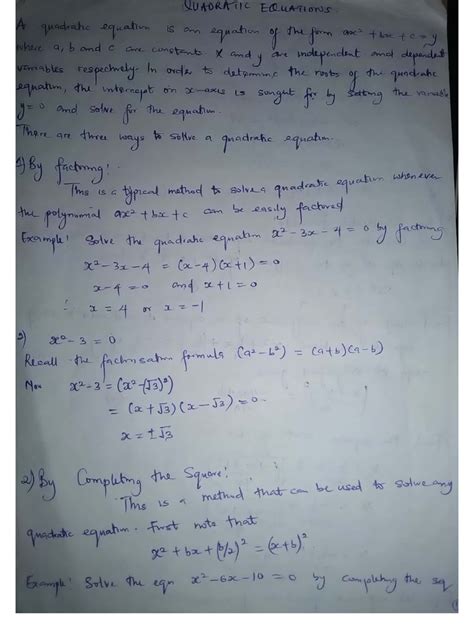 QUADRATIC EQUATIONS.
A quadratic equation is an equation of the form ax² + bx + c = y
where a, b and c are constants x and y are independent and dependent
variables respectively. In order to determine the roots of the quadratic
equation, the intercept on x-axis is sought for by setting the variable
y=0 and solve for the equation.
There are three ways to solve a quadratic equation.
1) By factoring:
This is a typical method to solve a quadratic equation whenever
the polynomial ax² + bx + c can be easily factored
Example: Solve the quadratic equation x² - 3x - 4 = 0 by factoring
x² - 3x - 4 = (x-4)(x+1) = 0
x - 4 = 0 and x + 1 = 0
∴ x = 4 or x = -1
2) x² - 3 = 0
Recall the factorisation formula (a² - b²) = (a+b)(a-b)
x² - 3 = (x² - (√3)²)
= (x + √3)(x - √3) = 0.
x = ±√3
2) By Completing the Square:
This is a method that can be used to solve any
quadratic equation. First note that
x² + bx + (b/2)² = (x+b)²
Example: Solve the eqn x² - 6x - 10 = 0 by completing the sq